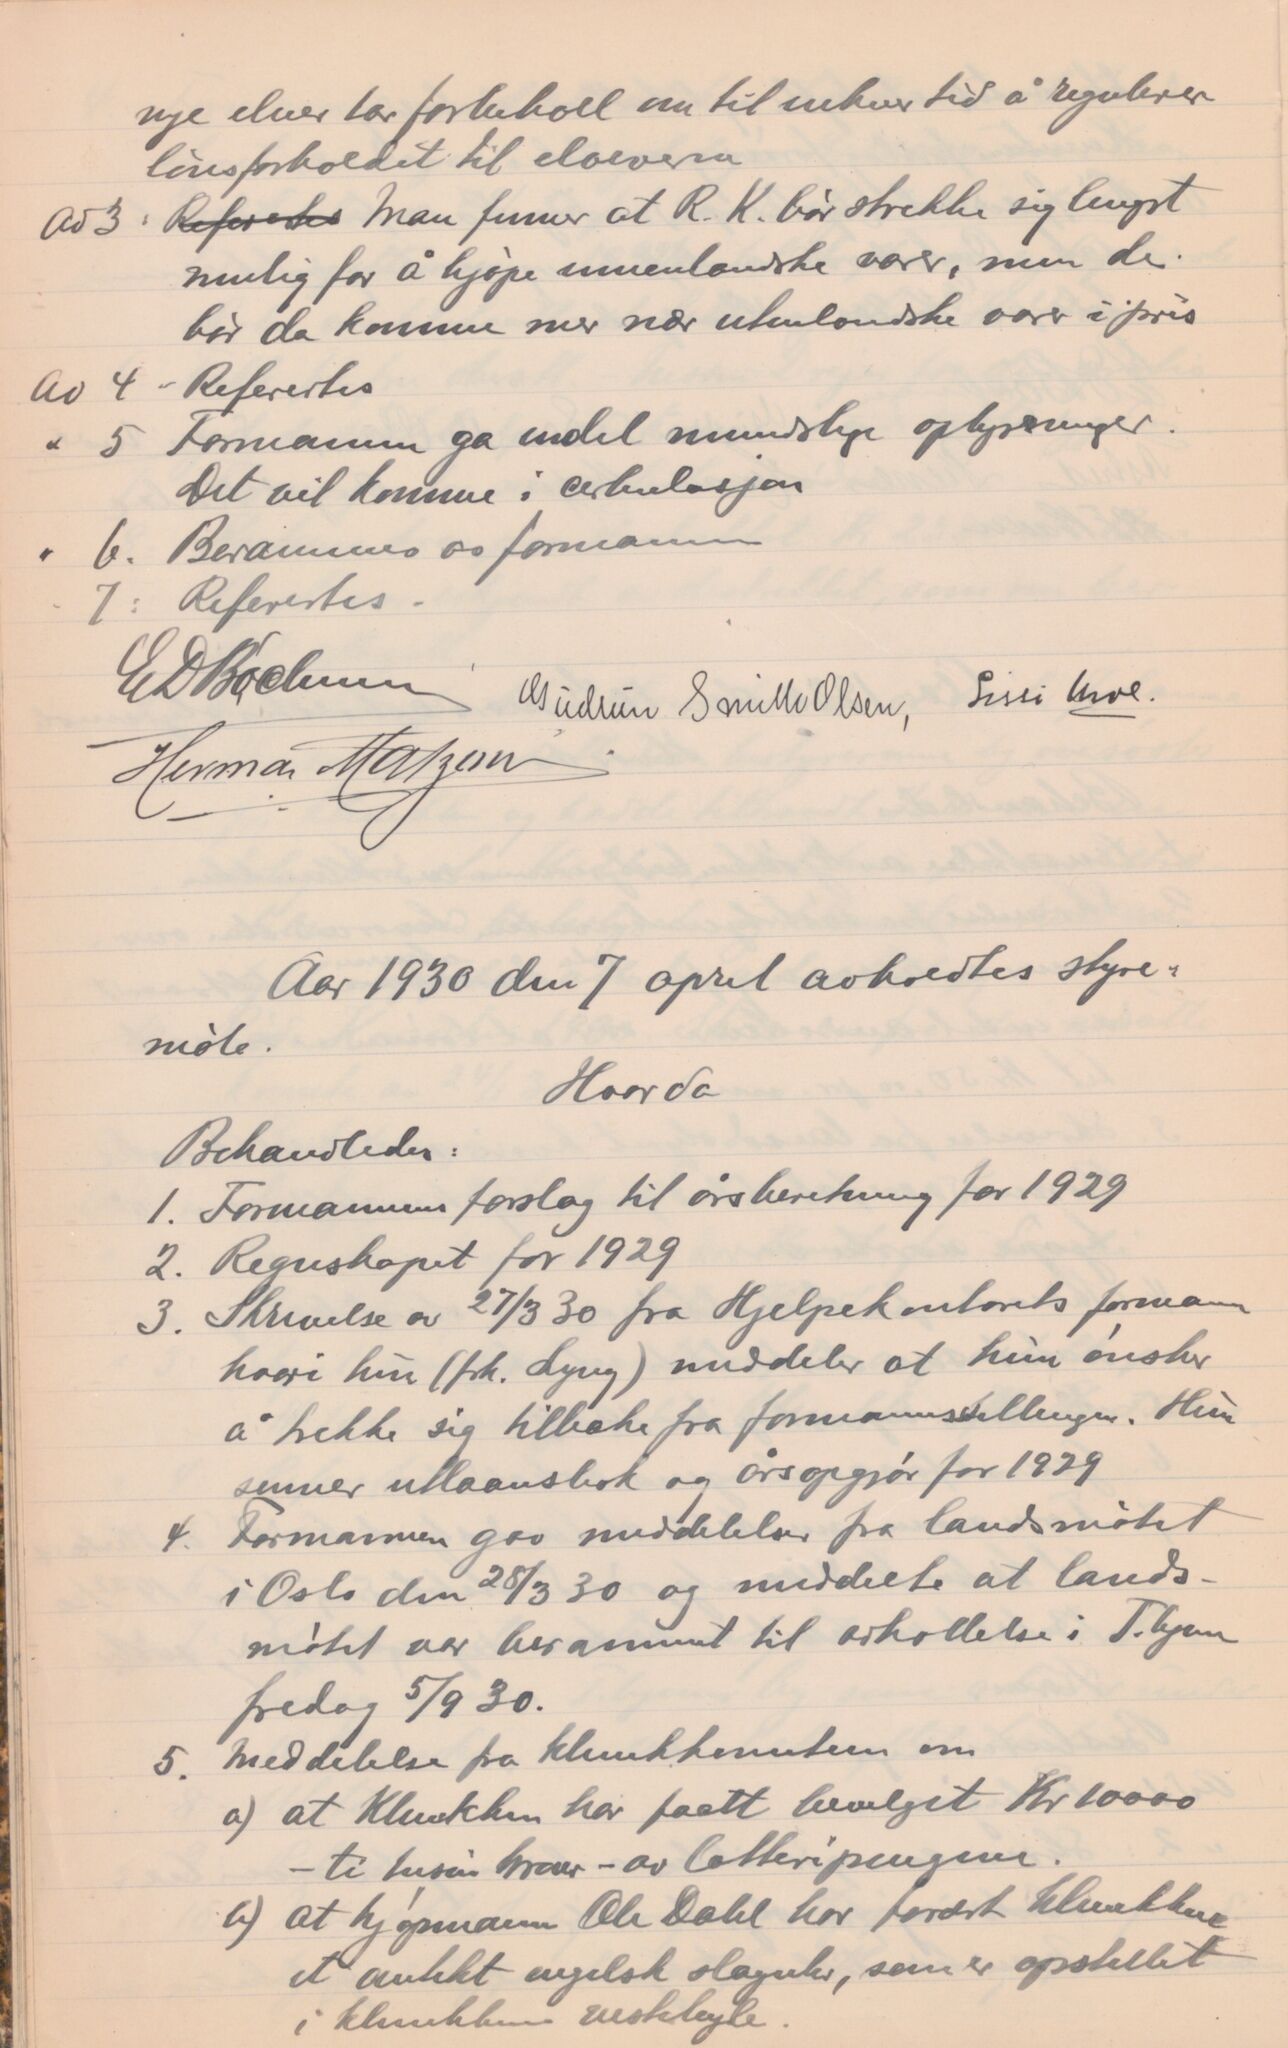 nye elver tar forbeholl om til enhver tid å regulerer
lönsforholdet til eleverne
Ad 3: Referertes Man finner at R. K. bör strekke sig lengst
mulig for å kjöpe innenlandske varer, men de
bör da komme mer nær utenlandske varer i pris
Ad 4 - Refertes
" 5 Formannen ga endel mundtlige oplysninger.
Det vil komme i cirkulasjon
" 6. Berammes av formannen
- 7: Refertes -
E D Böckman Gudrun Smith Olsen, Sissi
Herman Matzow
Aar 1930 den 7 april avholdtes styre-
möte.
Hvor da
Behandledes:
1. Formannens forslag til årsberetning for 1929
2. Regnskapet for 1929
3. Skrivelse av 27/3 30 fra Hjelpekontorets formann
hvori hun (frk. Lyng) meddeler at hun önsker
å trekke sig tilbake fra formannsstillingen. Hun
senner utlaansbok og årsopgjör for 1929
4. Formannen gav meddelelser fra landsmötet
i Oslo den 28/3 30 og meddelte at lands-
mötet var berammet til avhollelse i T.hjem
fredag 5/9 30.
5. Meddelelse fra klinikkomiteen om
a) at Klinikken har faatt bevilget Kr 10000
- ti tusin kroner - av lotteripengene.
b) at kjöpmann Ole Dahl har foræret klinikken
et antikt engelsk slaguhr, som er opstillet
i klinikkens vestibyle.